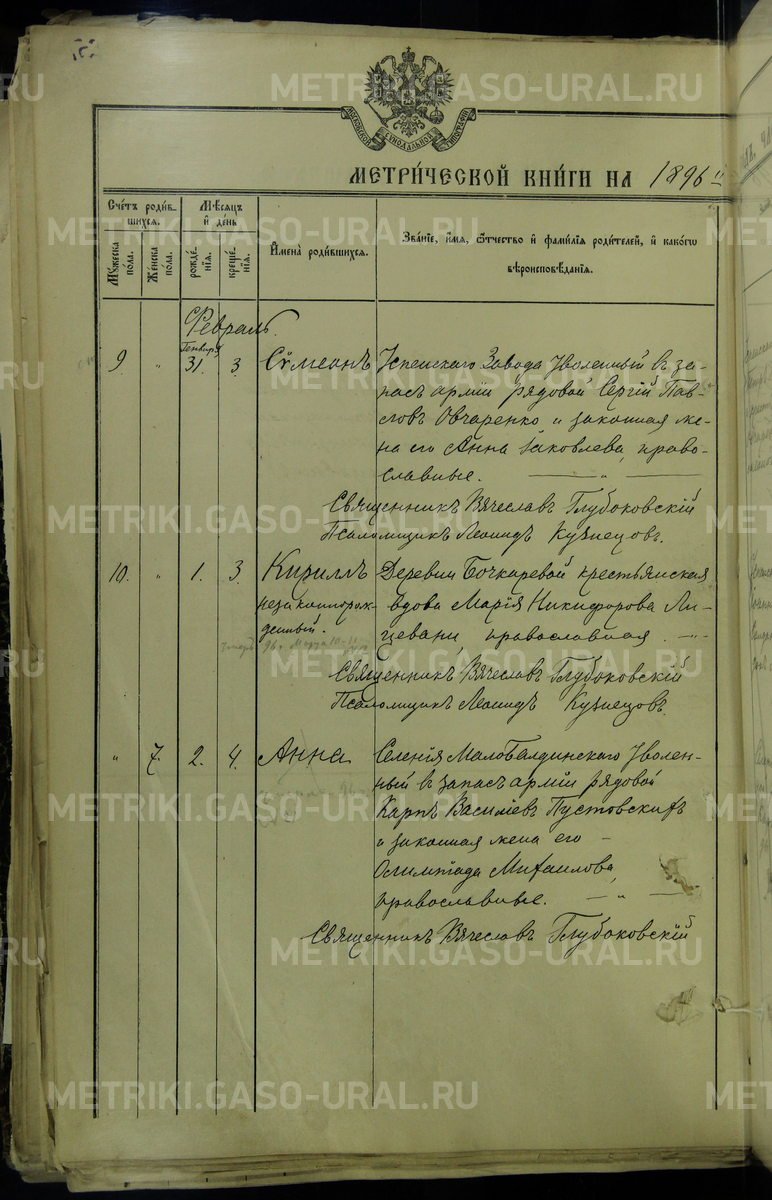 METRIKI.GASO-URAL.RU
МОСКОВСКОЙ СУНОДАЛЬНОЙ ТИПОГРАФІИ
МЕТРИ́ЧЕСКОЙ КНИ́ГИ НА 1896 й
Сче́тъ роди́в-
шихся.
Мѣ́сяцъ
и҆ де́нь
Му́жеска
по́ла.
Же́нска
по́ла.
рожде́-
нїя.
креще́-
нїя.
И҆мена̀ роди́вшихся.
Зва́нїе, и҆́мя, ѻ҆́тчество и҆ фами́лїя роди́телей, и҆ како́гѡ
вѣроисповѣ́данїя.
Февраль.
Генваря
9 " 31. 3. Сѵмеонъ Успенскаго Завода Уволенный въ за-
пасъ арміи рядовой Сергій Пав-
ловъ Овчаренко и законная же-
на его Анна Яковлева, право-
славные. — " —
Священникъ Вячеславъ Глубоковскій
Псаломщикъ Леонидъ Кузнецовъ.
10. " 1. 3. Кириллъ Деревни Бочкаревой крестьянская
незаконорож-
денный.
вдова Марія Никифорова Ли-
цевани, православная. — " —
Священникъ Вячеславъ Глубоковскій
Псаломщикъ Леонидъ Кузнецовъ.
" 7. 2. 4. Анна Селенія Малобалдинскаго Уволен-
ный въ запасъ арміи рядовой
Карпъ Василіевъ Пустовскихъ
и законная жена его —
Олимпіада Михаилова,
православные. — " —
Священникъ Вячеславъ Глубоковскій